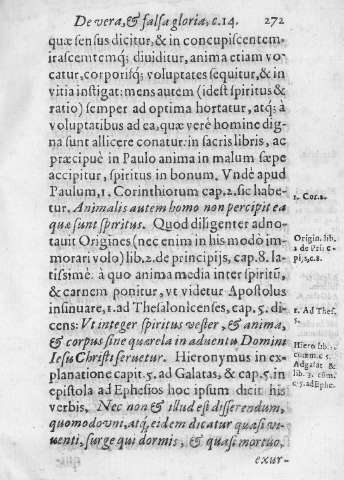 De vera, & falsa gloria, c.14. 272
quæ sensus dicitur, & in concupiscentem,
irascentemq; diuiditur, anima etiam vo-
catur, corporisq; voluptates sequitur, & in
vitia instigat: mens autem (idest spiritus &
ratio) semper ad optima hortatur, atq; à
voluptatibus ad ea, quæ verè homine dig-
na sunt allicere conatur: in sacris libris, ac
præcipuè in Paulo anima in malum sæpe
accipitur, spiritus in bonum. Vnde apud
Paulum, 1. Corinthiorum cap. 2. sic habe-
tur. Animalis autem homo non percipit ea
quæ sunt spritus. Quod diligenter adno-
tauit Origines (nec enim in his modò im-
morari volo) lib. 2. de principijs, cap. 8. la-
tissimè: à quo anima media inter spiritũ,
& carnem ponitur, vt videtur Apostolus
insinuare, 1. ad Thesalonicenses, cap. 5. di-
cens: Vt integer spiritus vester, & anima,
& corpus sine quærela in aduentu Domini
Iesu Christi seruetur. Hieronymus in ex-
planatione capit. 5. ad Galatas, & cap. 5. in
epistola ad Ephesios hoc ipsum dicit his
verbis. Nec non & illud est disserendum,
quomodo vni, atq; eidem dicatur quasi vi-
uenti, surge qui dormis, & quasi mortuo,
exur-
1. Cor. 2.
Origin. lib.
2 de Pri c-
pi, s, c. 8.
1. Ad Thes.
5.
Hiero lib.
comm. c 5.
Ad galat &
lib. 3. cōm.
c. 5. ad Ephe.